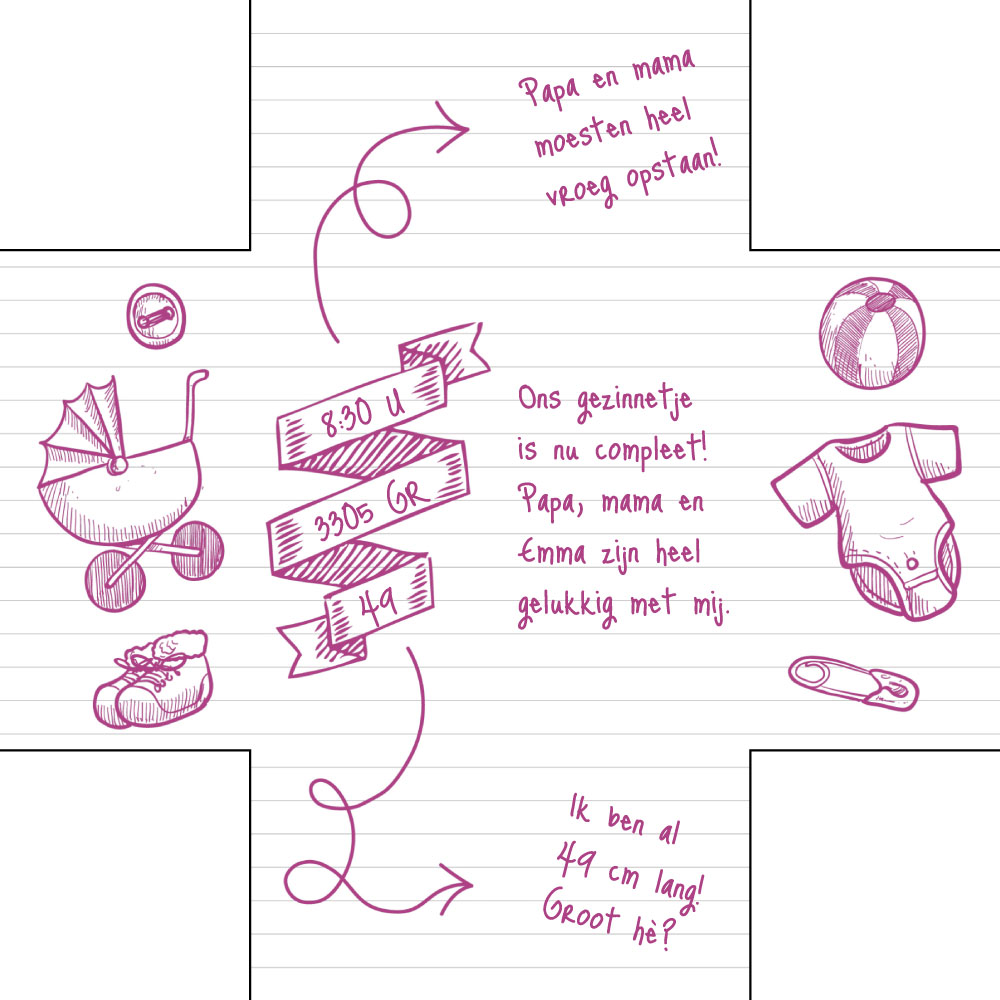 Papa en mama
moesten heel
vroeg opstaan!
8:30 U
3305 GR
49
Ons gezinnetje
is nu compleet!
Papa, mama en
Emma zijn heel
gelukkig met mij.
Ik ben al
49 cm lang!
Groot hè?